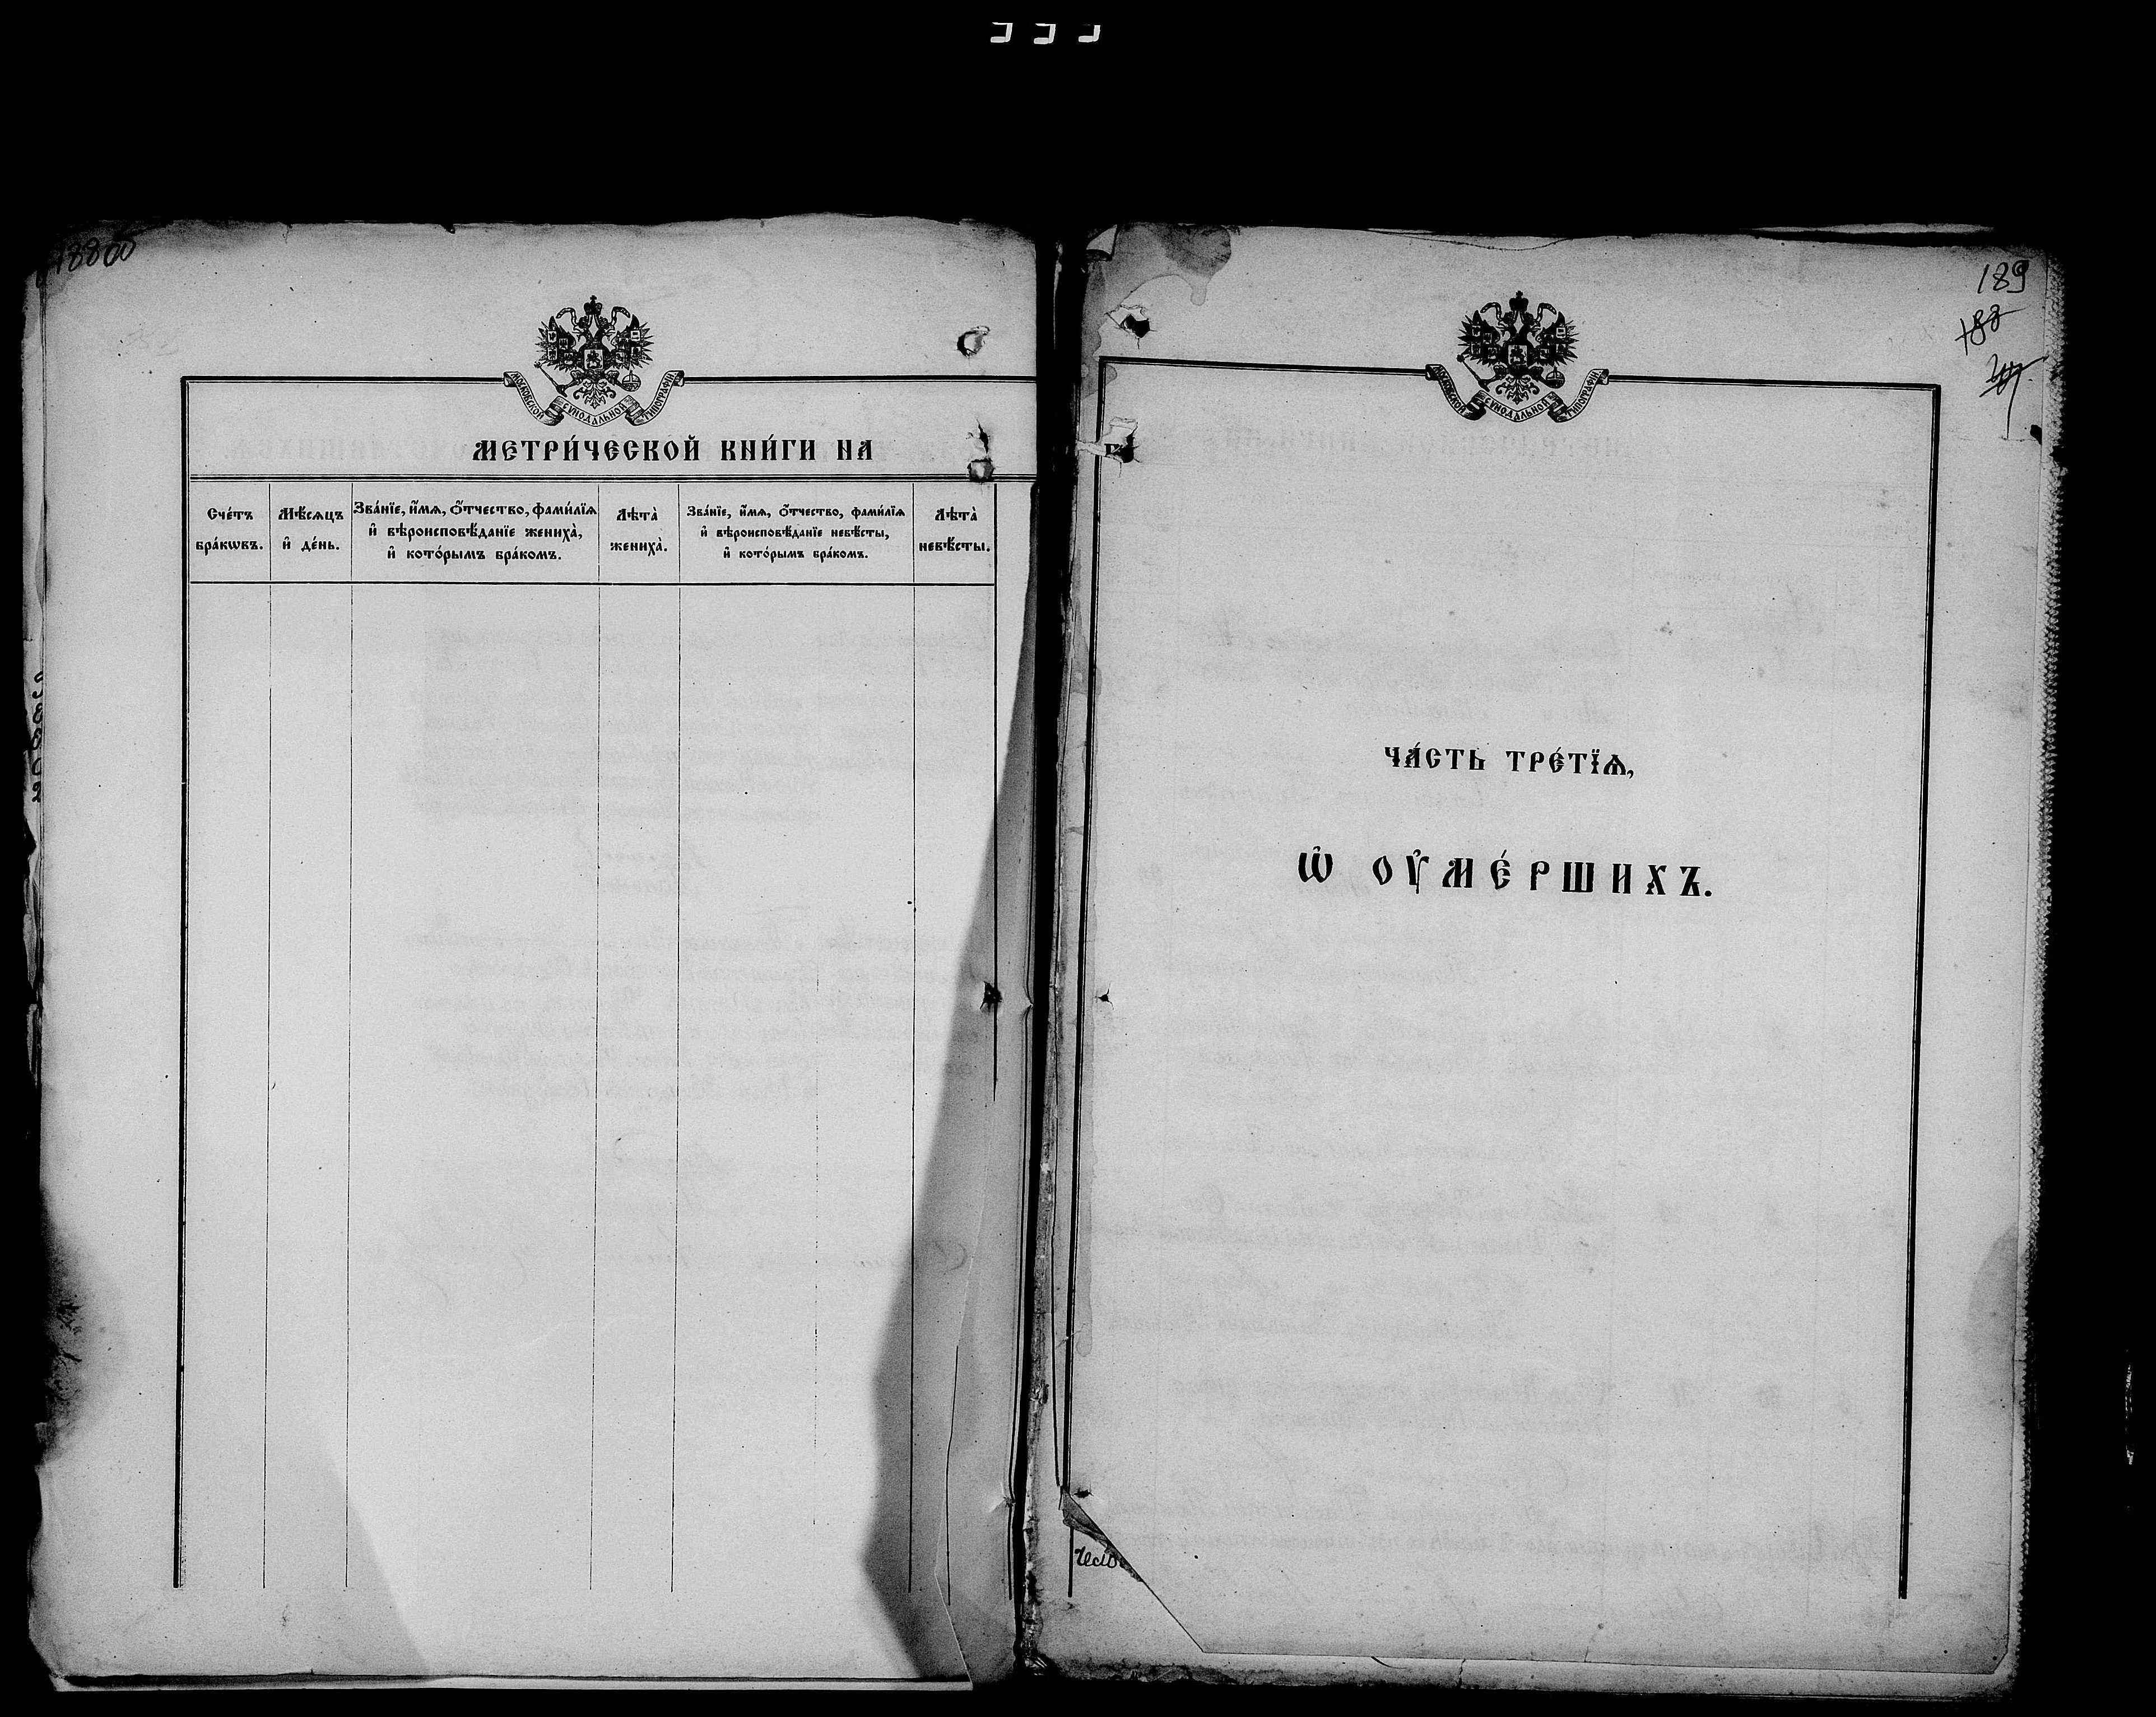 188 об
МОСКОВСКОЙ СѴНОДАЛЬНОЙ ТИПОГРАФІИ
МЕТРИ́ЧЕСКОЙ КНИ́ГИ НА
Сче́тъ бра́кѡвъ.
Мѣ́сѧцъ и҆ де́нь.
Зва́нїе, и҆́мѧ, ѻ҆́тчество, фами́лїѧ
и҆ вѣроисповѣ́данїе жениха̀,
и҆ кото́рымъ бра́комъ.
Лѣта̀ жениха̀.
Зва́нїе, и҆́мѧ, ѻ҆́тчество, фами́лїѧ
и҆ вѣроисповѣ́данїе невѣ́сты,
и҆ кото́рымъ бра́комъ.
Лѣта̀ невѣ́сты.
189
188
МОСКОВСКОЙ СѴНОДАЛЬНОЙ ТИПОГРАФІИ
ЧА́СТЬ ТРЕ́ТЇѦ,
Ѡ҆ ОУ҆МЕ́РШИХЪ.